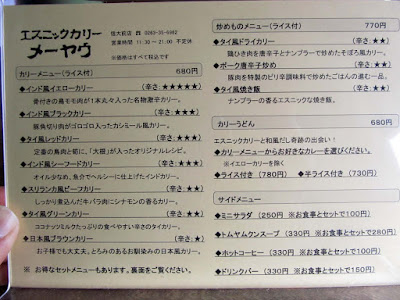 エスニックカリー
メーヤウ
信大前店 ☎ 0263-35-5982
営業時間 11:30 ～ 21:00 不定休
※価格はすべて税込です
カリーメニュー(ライス付) 680円
◆インド風イエローカリー (辛さ:★★★★★)
骨付きの鳥モモ肉が1本丸々入った名物激辛カリー。
◆インド風ブラックカリー (辛さ:★★★)
豚角切り肉がゴロゴロ入ったカシミール風カリー。
◆タイ風レッドカリー (辛さ:★★★★)
定番の鳥肉と筍に、「大根」が入ったオリジナルレシピ。
◆インド風シーフードカリー (辛さ:★★★)
オイル少なめ、魚介でヘルシーに仕上げたインドカリー。
◆スリランカ風ビーフカリー (辛さ:★★)
しっかり煮込んだキラバラ肉にシナモンの香るカリー。
◆タイ風グリーンカリー (辛さ:★★)
ココナッツミルクたっぷりの食べやすい辛さのタイカリー。
◆日本風ブラウンカリー (辛さ:★)
お子様でも大丈夫、とろみのあるお馴染みの日本風カリー。
※ お得なセットメニューもあります。裏面をご覧ください。
炒めものメニュー(ライス付) 770円
◆タイ風ドライカリー (辛さ:★★)
鶏ひき肉を唐辛子とナンプラーで炒めたそぼろ風カリー。
◆ポーク唐辛子炒め (辛さ:★★★)
豚肉を特製のピリ辛調味料で炒めたごはんの進む一品。
◆タイ風焼き飯 (辛さ:★★)
ナンプラーの香るエスニックな焼き飯。
カリーうどん 680円
エスニックカリーと和風だし奇跡の出会い!
◆カリーメニューからお好きなカレーを選びください。
※イエローカリーを除く
◆ライス付き(780円) ◆半ライス付き(730円)
サイドメニュー
◆ミニサラダ (250円 ※お食事とセットで100円)
◆トムヤムクンスープ(330円 ※お食事とセットで280円)
◆ホットコーヒー (330円 ※お食事とセットで100円)
◆ドリンクバー (330円 ※お食事とセットで150円)